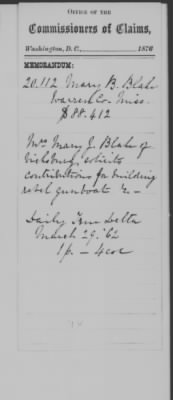 OFFICE OF THE
Commissioners of Claims,
Washington, D. C., 1876
MEMORANDUM:
20.112 Mary B. Blake
Warren Co. Miss.
$88.412
Mrs Mary J. Blake of
Vicksburg, solicits
contributions for building
rebel gunboats &c —
Daily True Delta
March 29. '62
1 p. — 4 col